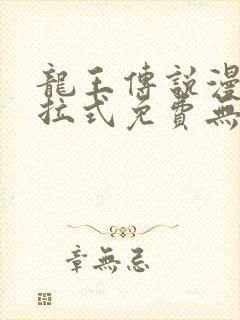 龍王傳說漫
拉式免費無
章無忌